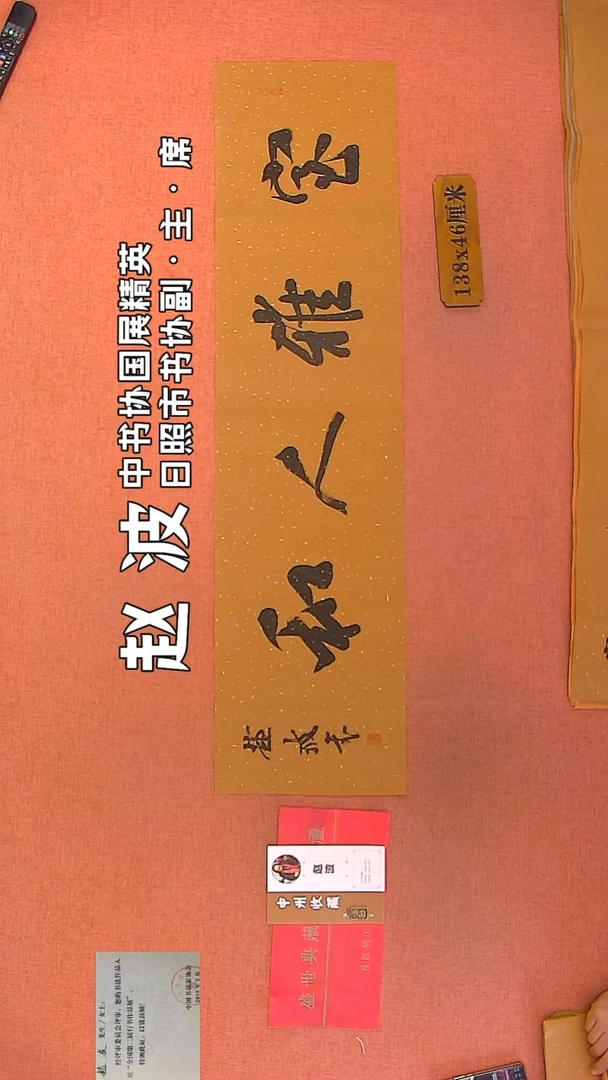 中书协国展精英
日照市书协副·主·席
赵波
室雅人和
138x46厘米
赵波
中州收藏
盛世典藏
先生/女士：
经评审委员会评审，您的书法作品入
展“全国第二届行书作品展”，
特颁此证，以资鼓励！
中国书法家协会